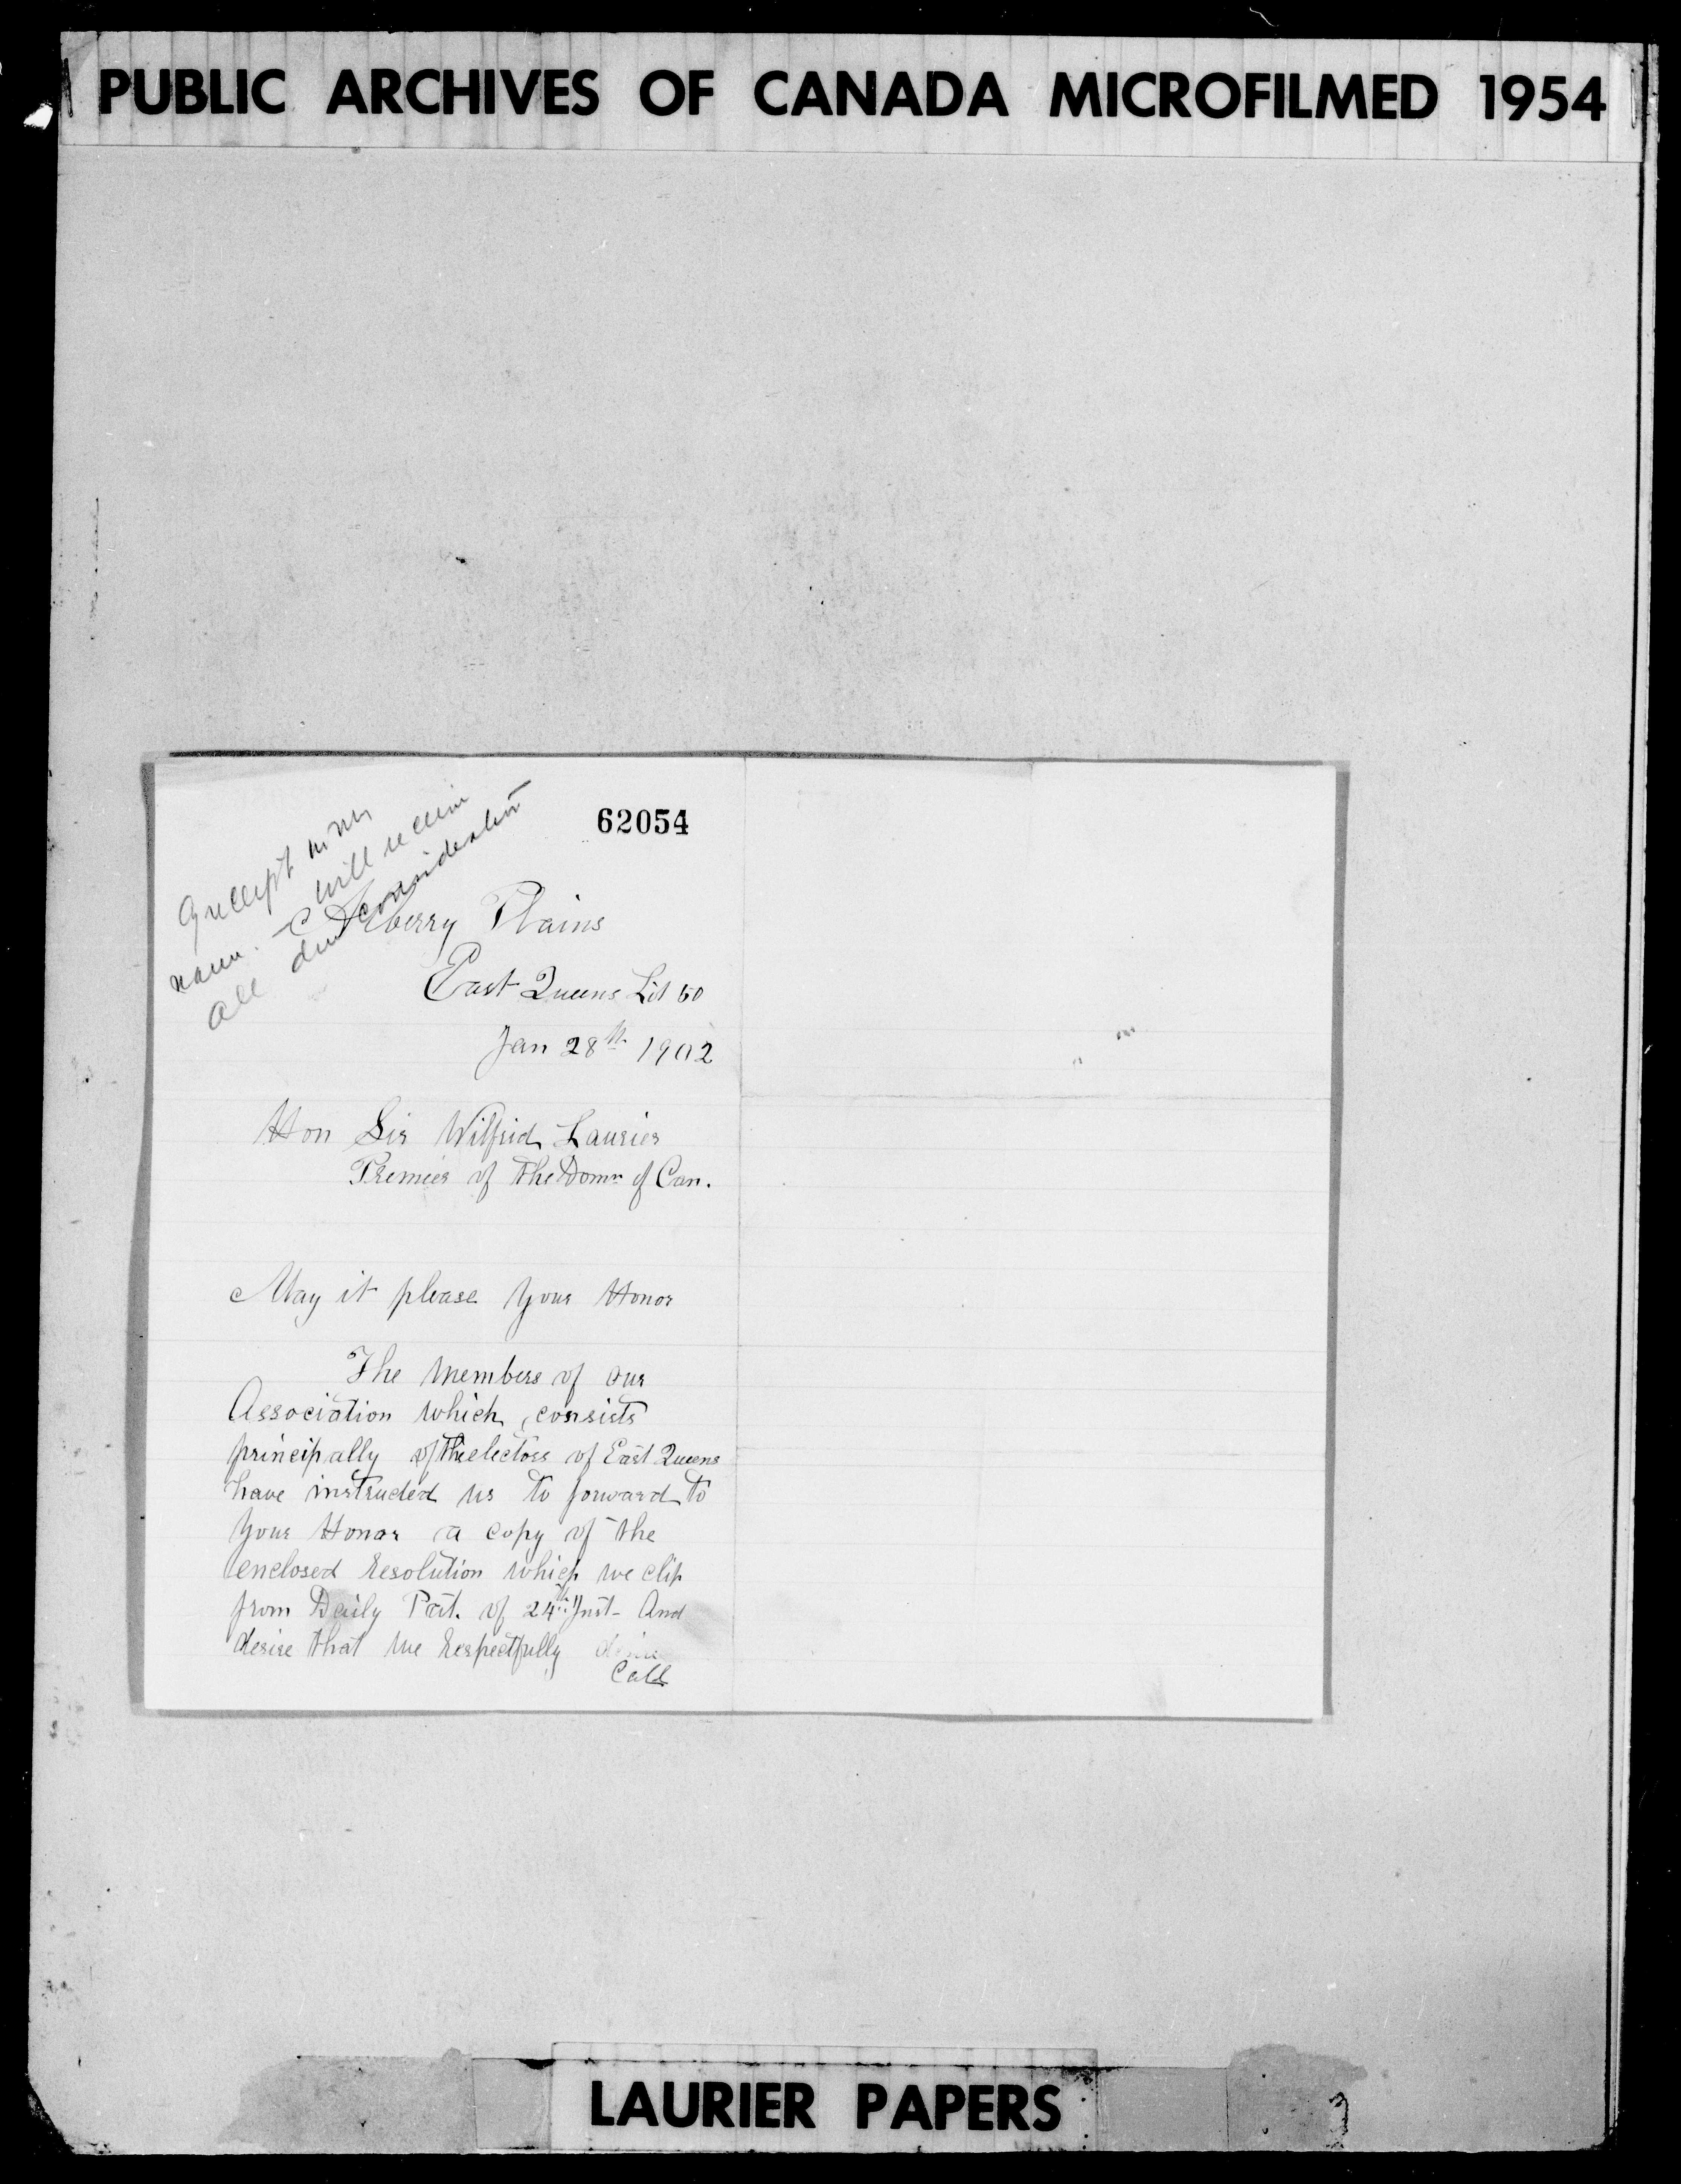 PUBLIC ARCHIVES OF CANADA MICROFILMED 1954
62054
will receive
all due consideration
Plains
East Queens Lot 50
Jan 28th 1902
Hon Sir Wilfrid Laurier
Premier of the Domn of Can.
May it please Your Honor
The Members of our
Association which consists
principally of the electors of East Queens
have instructed us to forward to
Your Honor a copy of the
enclosed resolution which we clip
from Daily Pat. of 24th Inst - And
desire that we respectfully desire
Call
LAURIER PAPERS